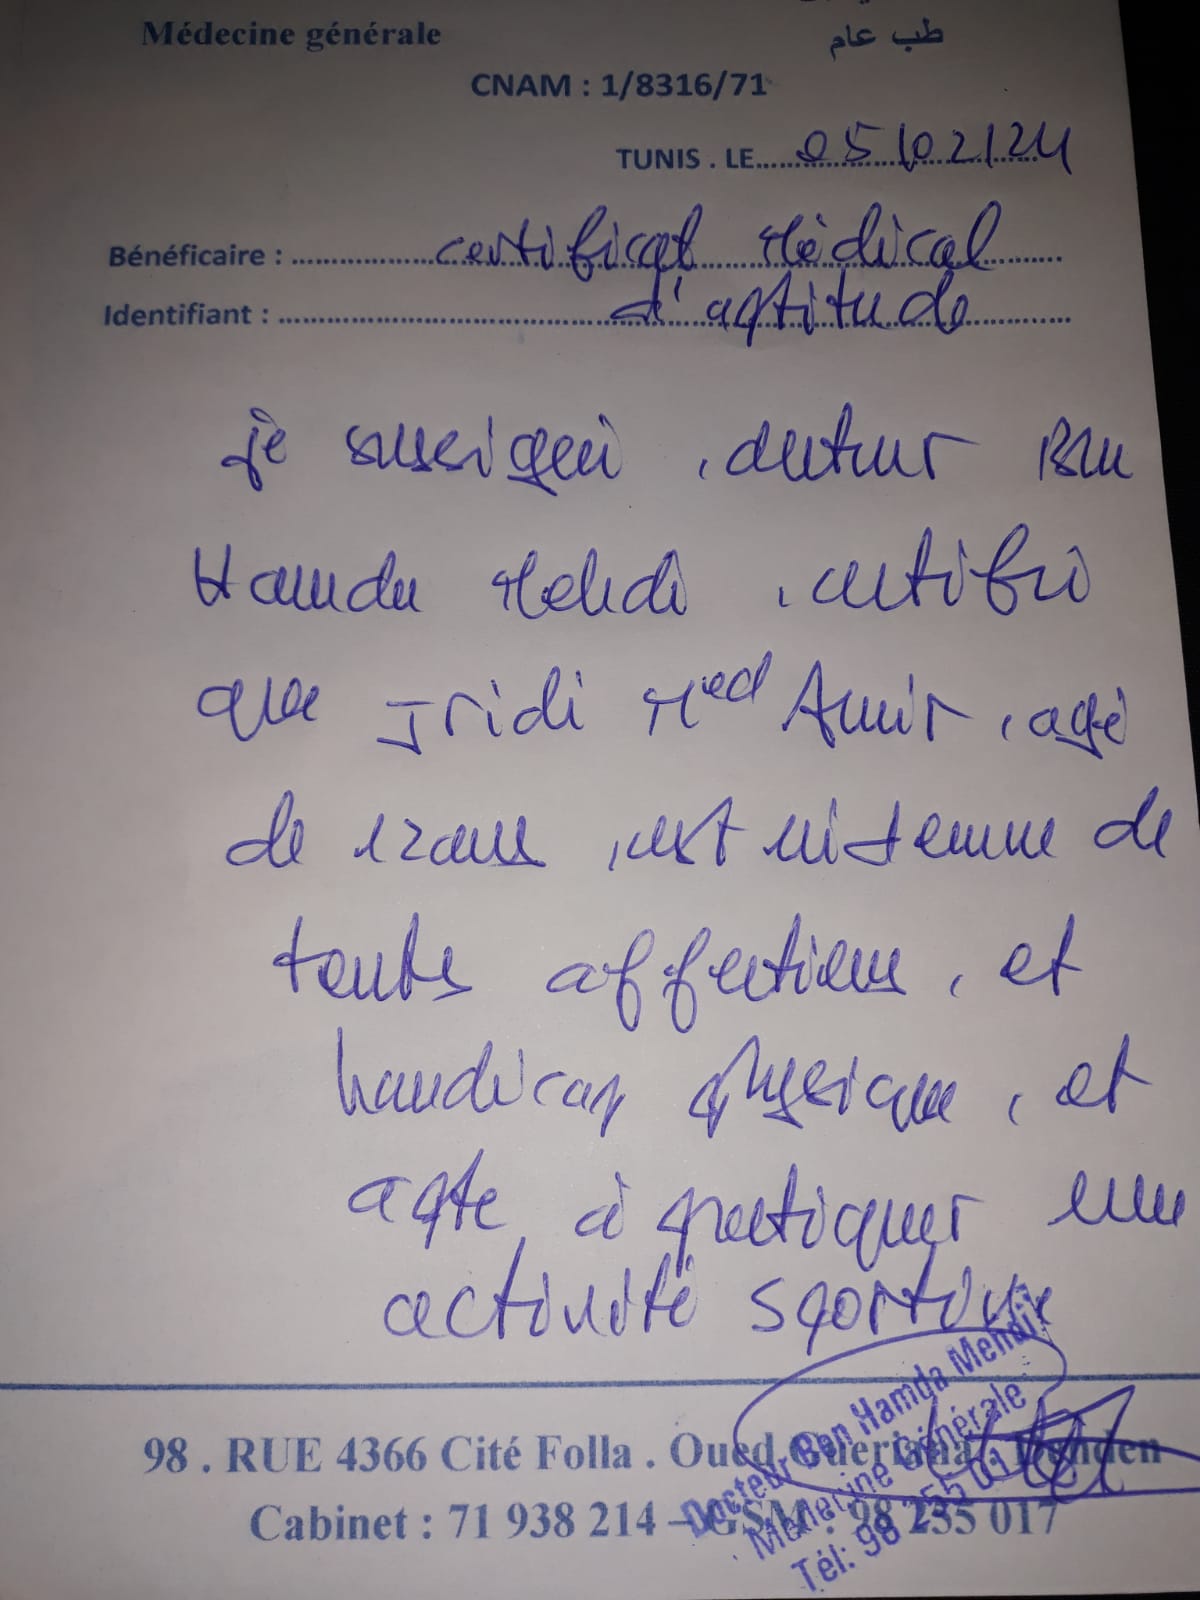 Médecine générale
طب عام
CNAM : 1/8316/71
TUNIS . LE.... 05/02/24
Bénéficaire : .... certificat Médical
Identifiant : .... d'aptitude
je sussigné, docteur Ben
Hamda Mehdi, certifie
que Jridi Med Amir, agé
de 12 ans, est indemne de
toutes affections, et
handicap physique, et
apte à pratiquer une
activité sportive
Docteur Ben Hamda Mehdi
Médecine Générale
Tél: 98 255 017
98 . RUE 4366 Cité Folla . Oued Gueriana .
Cabinet : 71 938 214 – GSM : 98 255 017